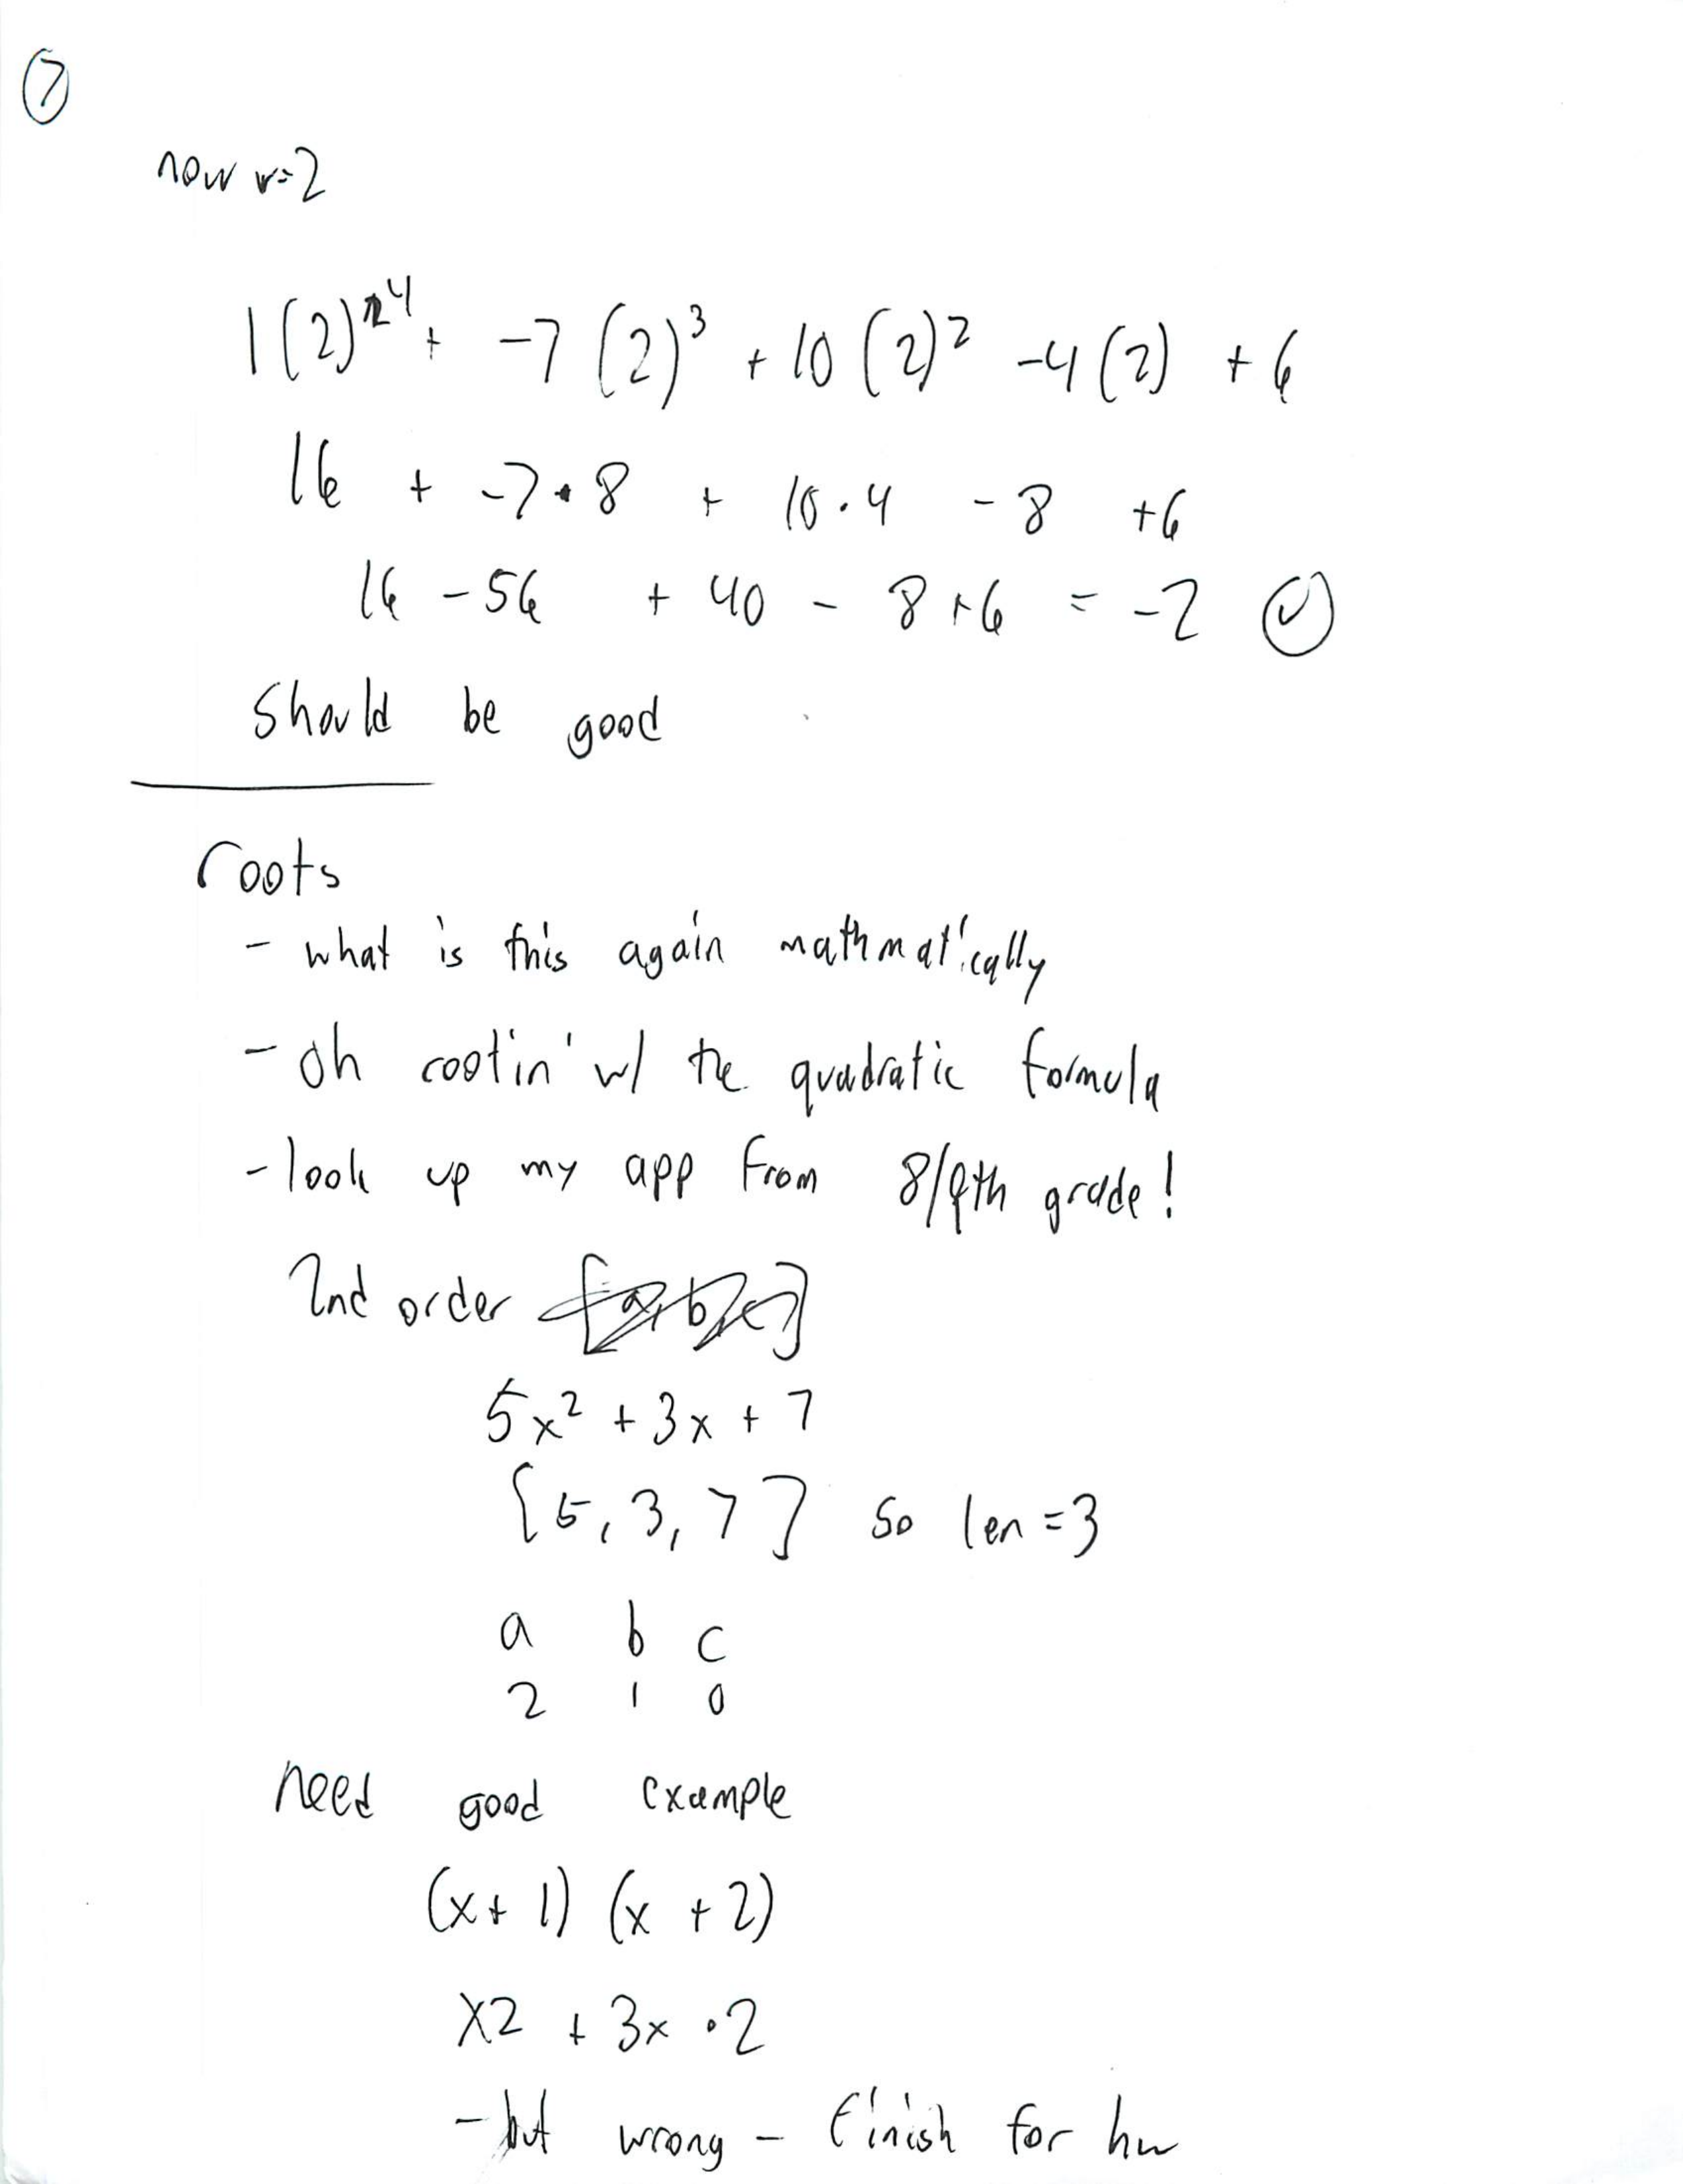 7
now r=2
1(2)^4 + -7(2)^3 + 10(2)^2 -4(2) + 6
16 + -7·8 + 10·4 - 8 +6
16 - 56 + 40 - 8+6 = -2 ✓
Should be good
roots
- what is this again mathmatically
- oh rootin' w/ the quadratic formula
- look up my app from 8/9th grade!
2nd order [a, b, c]
5x² + 3x + 7
[5, 3, 7] so len=3
a b c
2 1 0
need good example
(x+1) (x+2)
x2 + 3x · 2
- but wrong - finish for hw